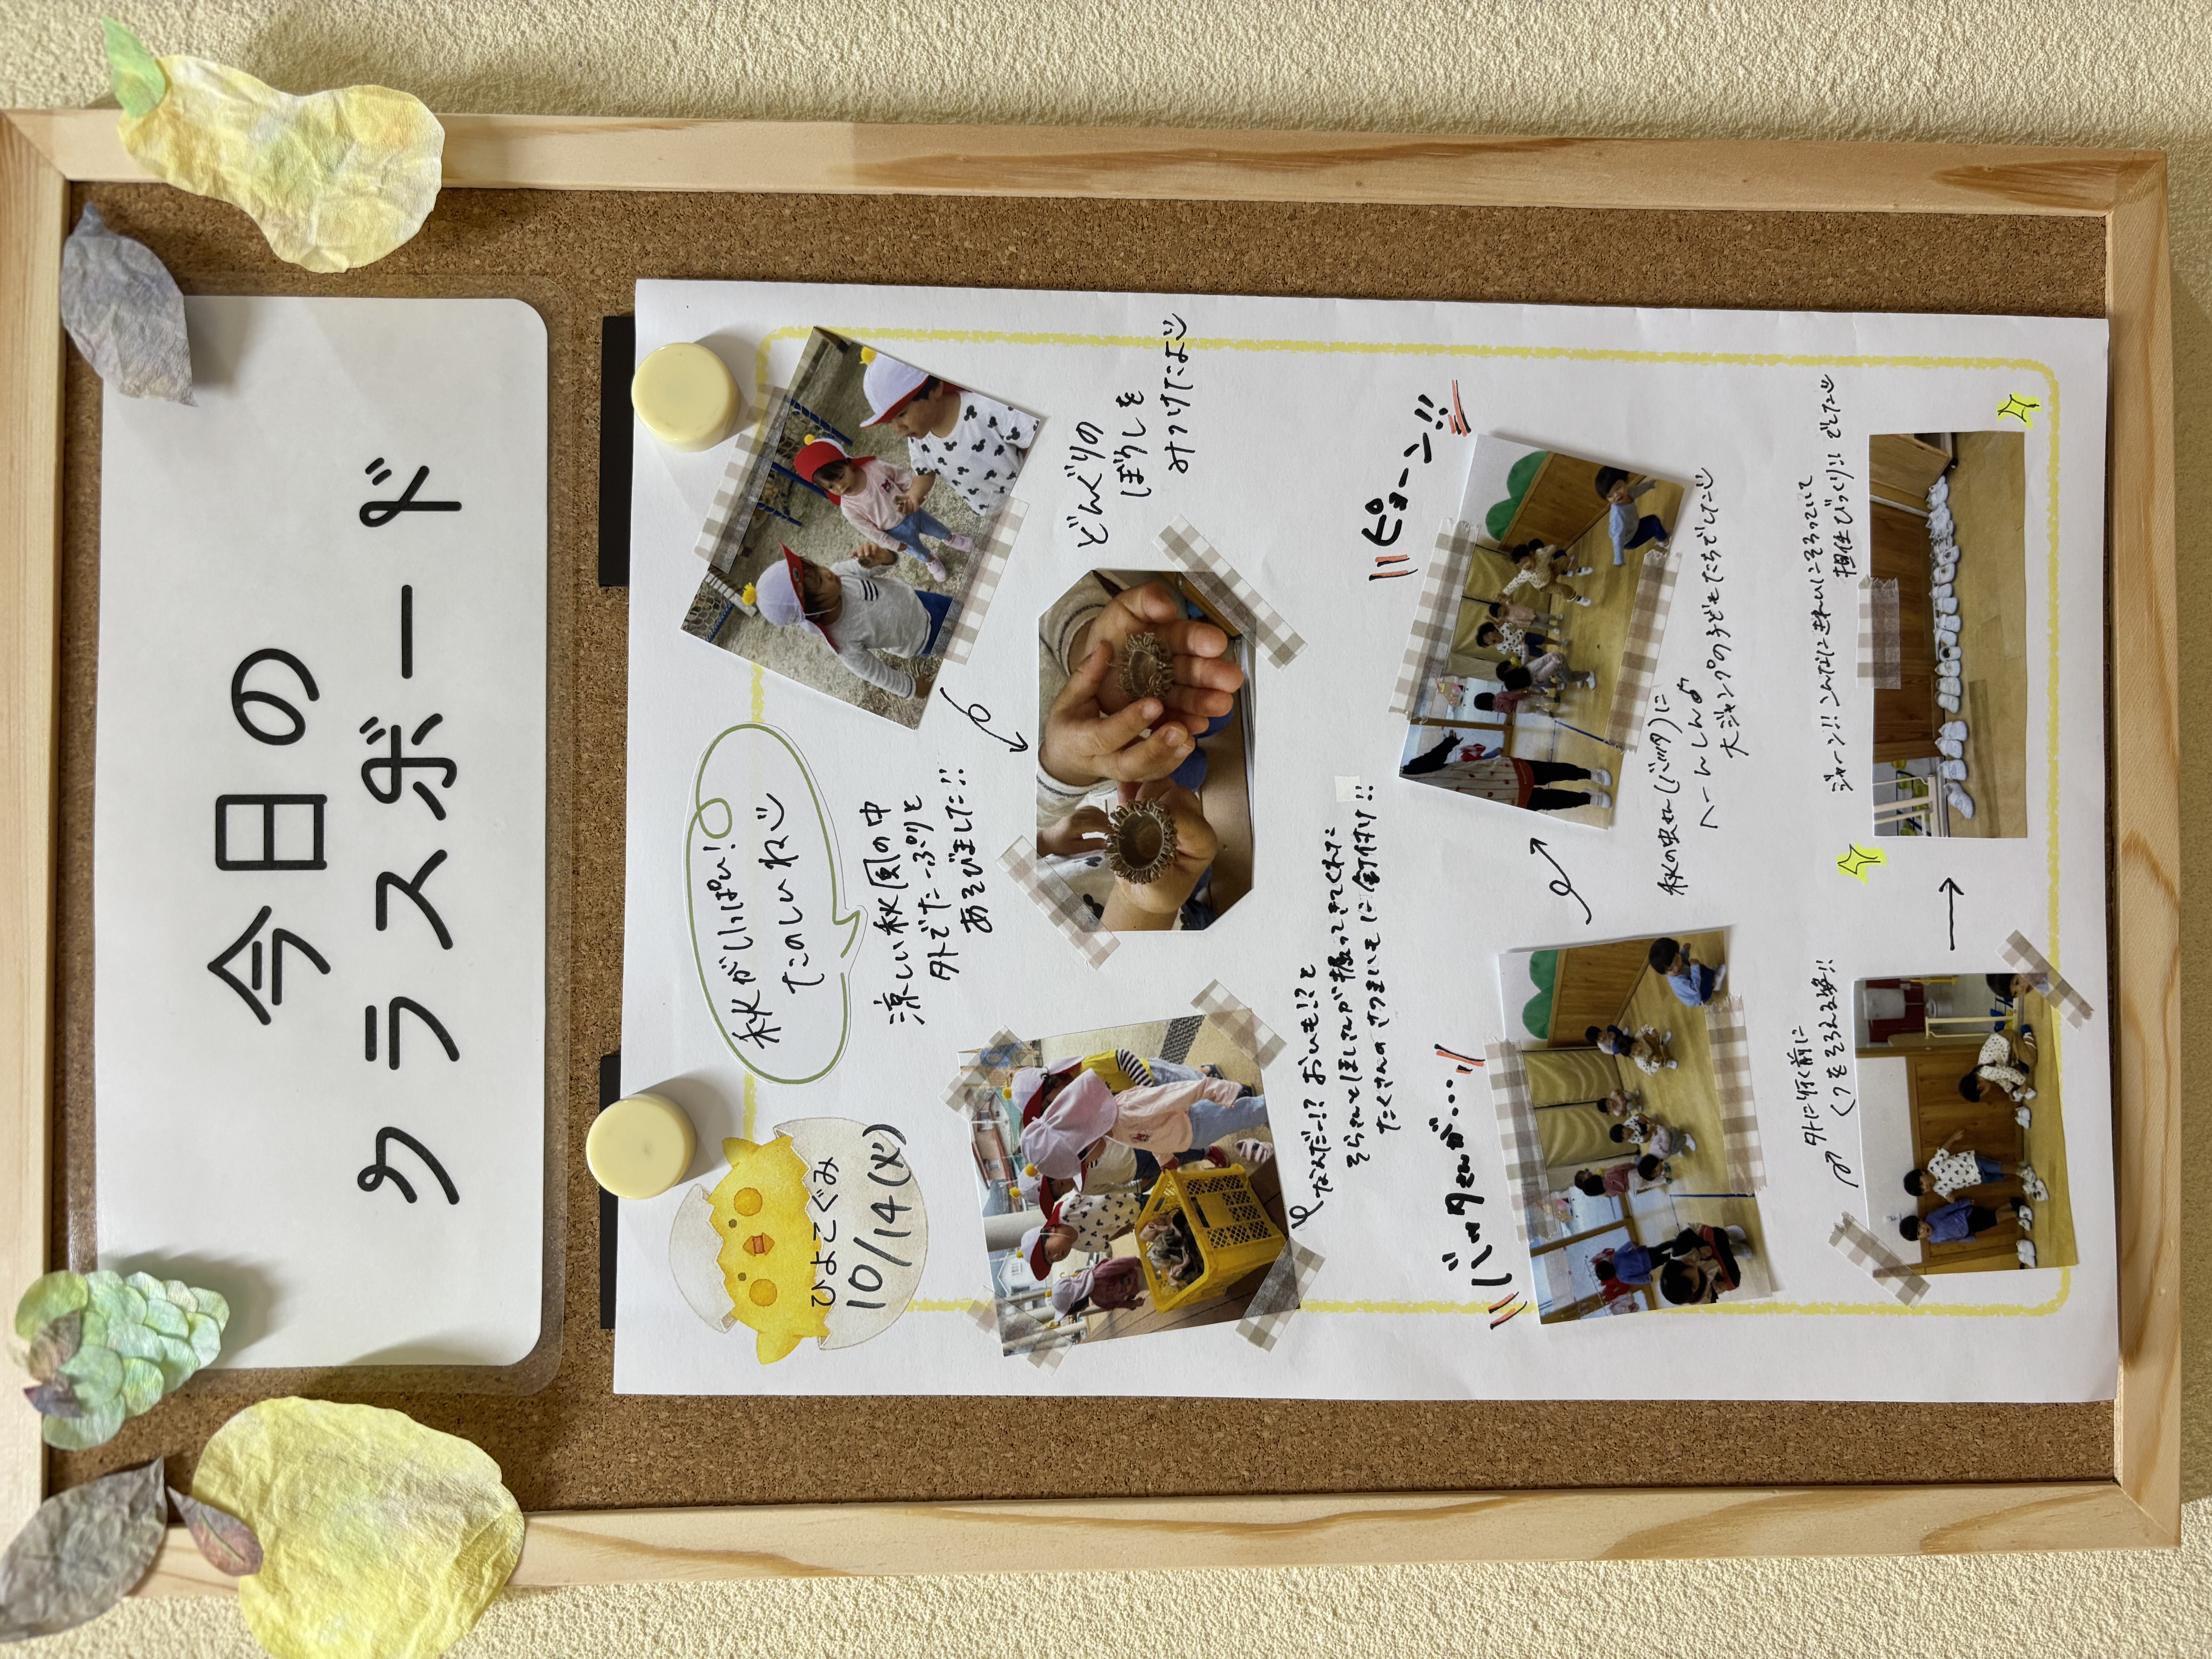 今日の
クラスボード
ひよこぐみ
10/14(火)
秋がいっぱい!
たのしいね
涼しい秋風の中
外でたーっぷりと
あそびました!!
どんぐりの
ぼうしを
みつけたよ
なんだー!? おいも!?と
そらさんとほしさんが掘ってきてくれた
たくさんのさつまいもに釘付け!!
バッタさんが・・・
ピョーン!!
秋の虫さん(バッタ)に
へーんしんよ
大ジャンプの子どもたちでした
外に行く前に
くつをそろえる姿!!
ジャーン!! こんなにきれいにそろっていて
担任びっくり!! でした